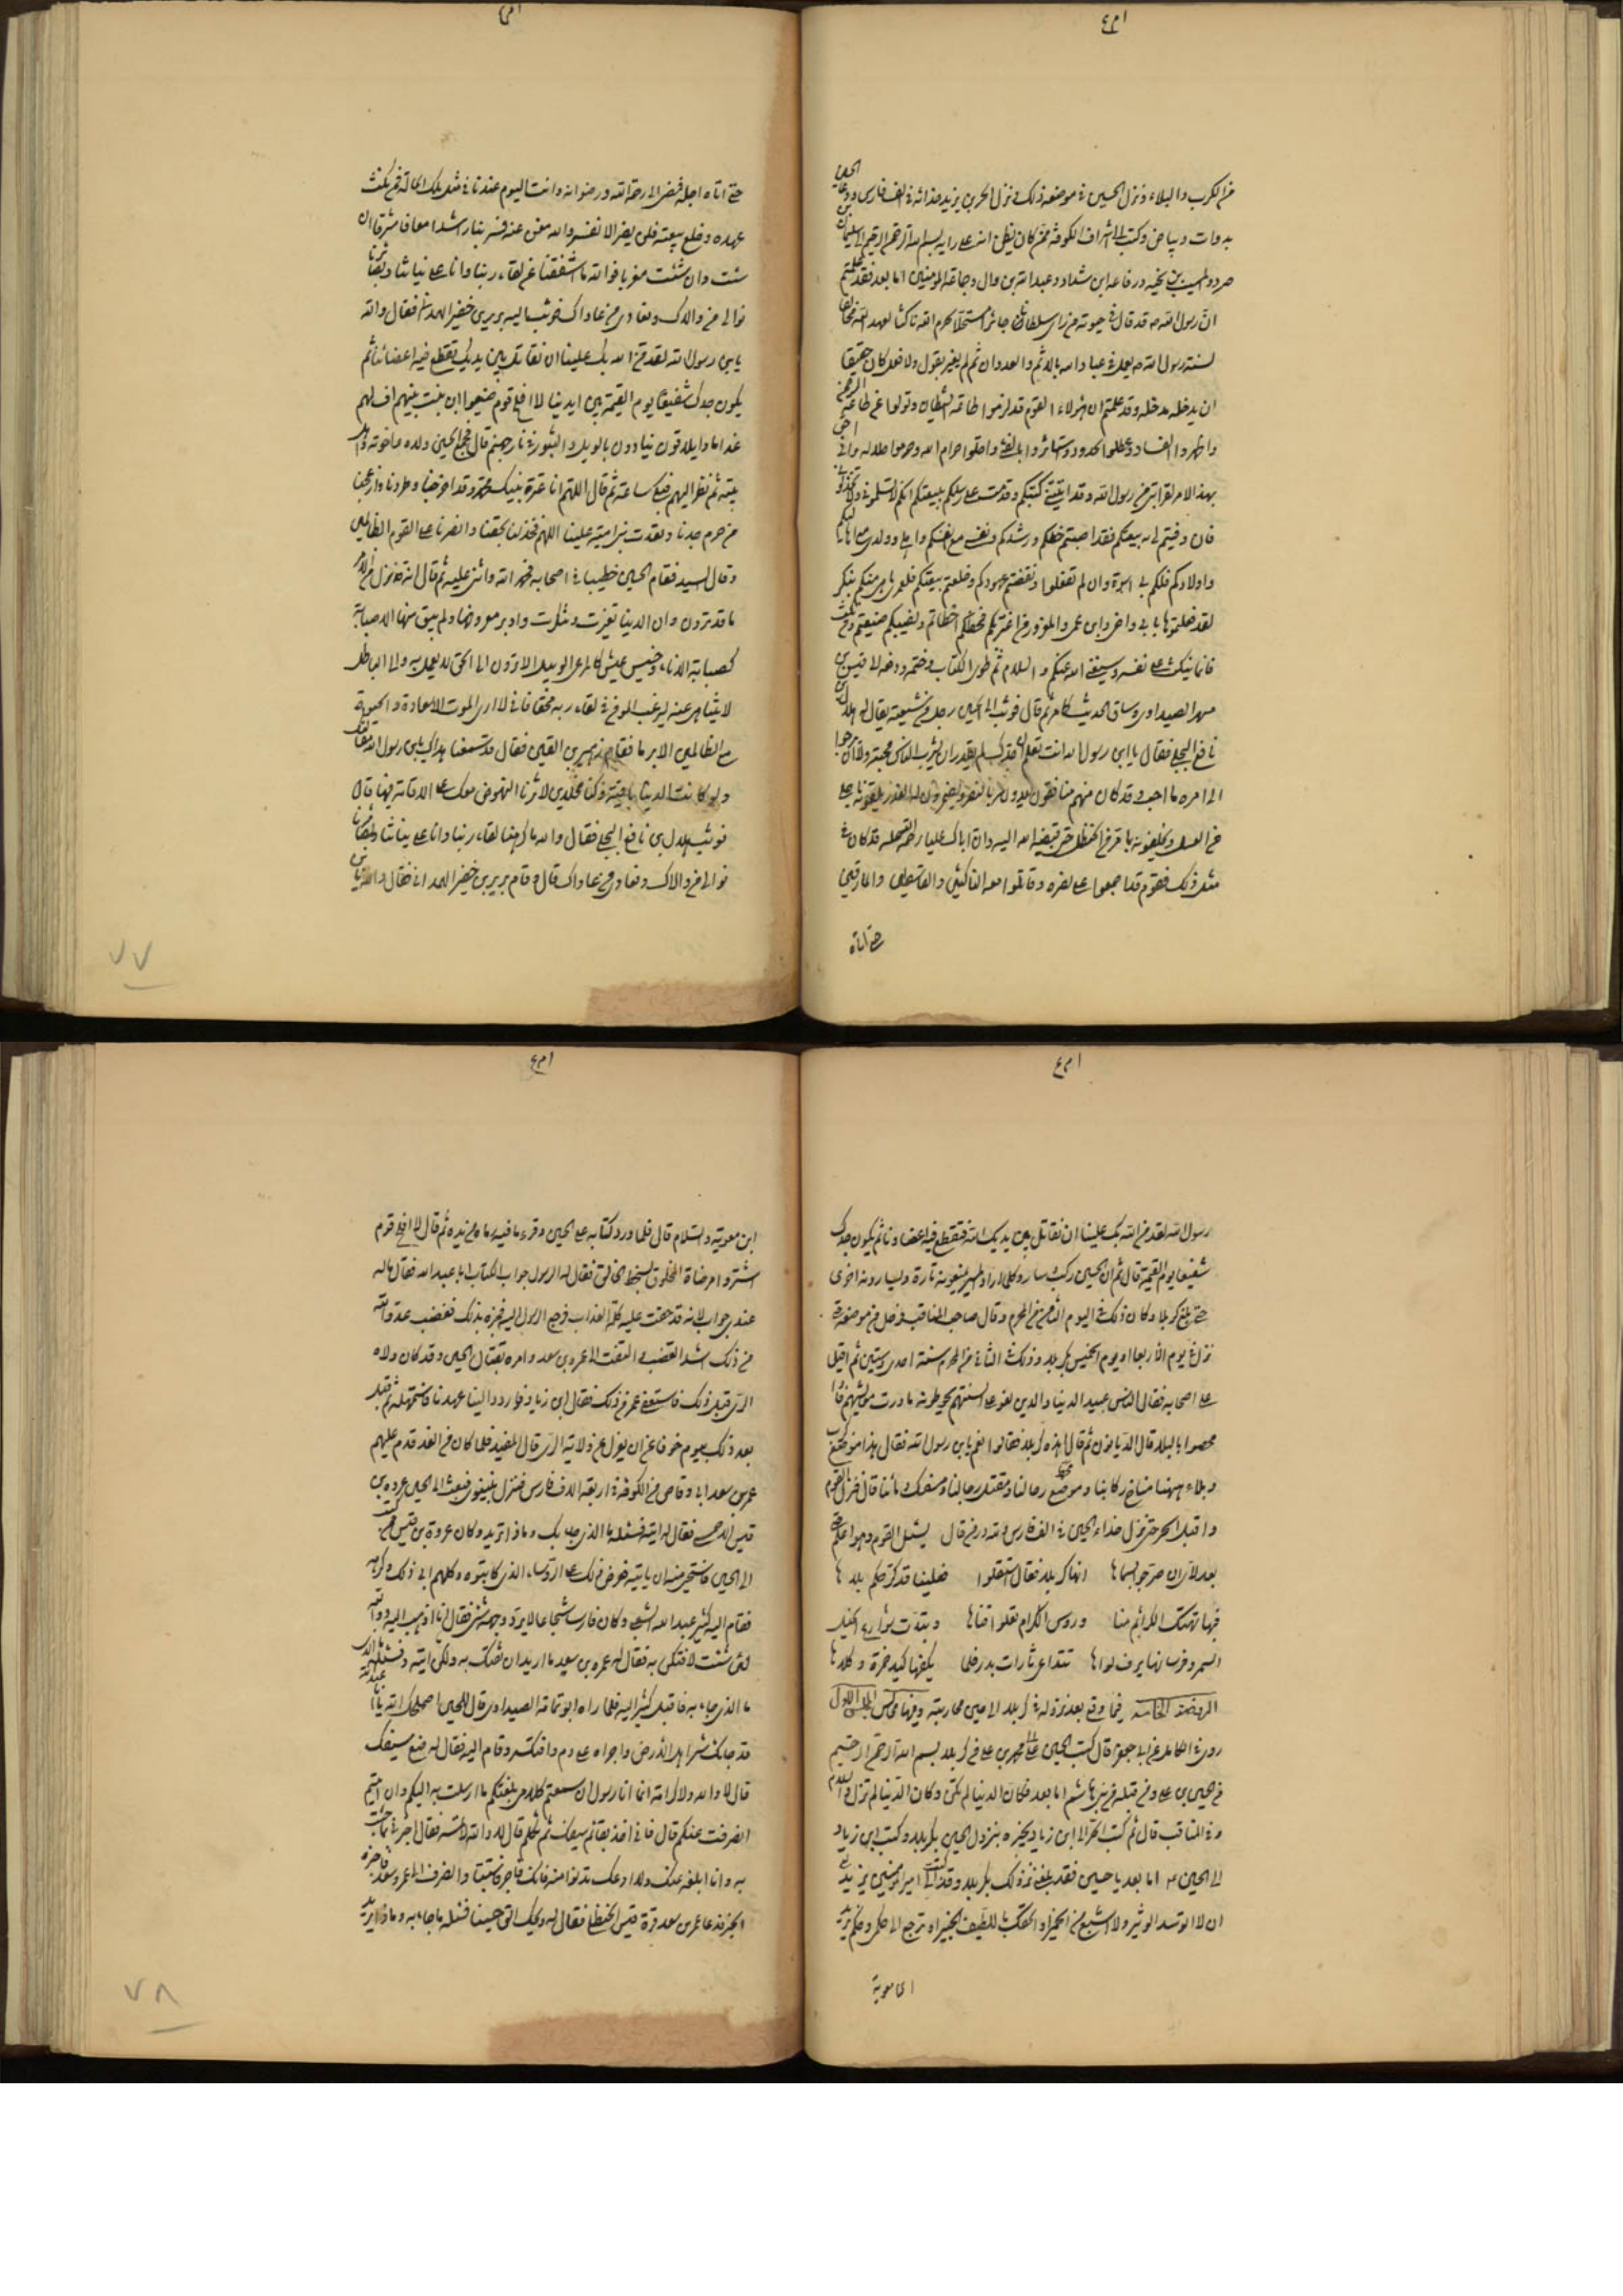 من الكرب والبلاء ونزل الحسين في موضعه ذلك ونزل الحر بن يزيد حذائه في الف فارس ودعا الحسين
بدوات وبياض وكتب الى اشراف الكوفة ممن كان يظن انه على رايه بسم الله الرحمن الرحيم الى سليمان بن
صرد والمسيب بن نجية ورفاعة ابن شداد وعبد الله بن وال وجماعة المؤمنين اما بعد فقد علمتم
ان رسول الله ص قد قال في حيوته من راى سلطانا جائرا مستحلا لحرم الله ناكثا لعهد الله مخالفا
لسنة رسول الله ص يعمل في عباد الله بالاثم والعدوان ثم لم يغير بقول ولا فعل كان حقيقا
ان يدخله مدخله وقد علمتم ان هؤلاء القوم قد لزموا طاعة الشيطان وتولوا عن طاعة الرحمن
واظهروا الفساد وعطلوا الحدود واستاثروا بالفئ واحلوا حرام الله وحرموا حلاله واني احق
بهذا الامر لقرابتي من رسول الله وقد اتتني كتبكم وقدمت على رسلكم ببيعتكم انكم لا تسلموني ولا تخذلوني
فان وفيتم لى ببيعتكم فقد اصبتم حظكم ورشدكم ونفسي مع انفسكم واهلى وولدى مع اهاليكم
واولادكم فلكم بى اسوة وان لم تفعلوا ونقضتم عهودكم وخلعتم بيعتكم فلعمرى ما هي منكم بنكر
لقد فعلتموها بابى واخى وابن عمى والمغرور من اغتر بكم فحظكم اخطاتم ونصيبكم ضيعتم ومن نكث
فانما ينكث على نفسه وسيغنى الله عنكم والسلام ثم طوى الكتاب وختمه ودفعه الى قيس بن
مسهر الصيداوى وساق الحديث كما مر ثم قال فوثب الى الحسين رجل من شيعته يقال له هلال بن
نافع البجلى فقال يا ابن رسول الله انت تعلم ان جدك لم يقدر ان يشرب الناس محبته ولا ان يرجعوا
الى امره ما احب وقد كان منهم منافقون يعدونه بالنصر ويضمرون له الغدر يلقونه باحلى
من العسل ويخلفونه بامر من الحنظل حتى قبضه الله اليه وان اباك عليا رحمة الله عليه قد كان في
مثل ذلك فقوم قد اجمعوا على نصره وقاتلوا معه الناكثين والقاسطين والمارقين
حتى اتاه
حتى اتاه اجله فمضى الى رحمة الله ورضوانه وانت اليوم عندنا في مثل تلك الحالة فمن نكث
عهده وخلع بيعته فلن يضر الا نفسه والله مغن عنه فسر بنا راشدا معافا مشرقا ان
شئت وان شئت مغربا فوالله ما اشفقنا من لقاء ربنا وانا على نياتنا وبصائرنا
نوالى من والاك ونعادى من عاداك فوثب اليه برير بن خضير الهمدانى فقال والله
يا بن رسول الله لقد من الله بك علينا ان نقاتل بين يديك تقطع فيه اعضائنا ثم
يكون جدك شفيعنا يوم القيمة بين ايدينا لا افلح قوم ضيعوا ابن بنت نبيهم اف لهم
غدا ماذا يلاقون ينادون بالويل والثبور في نار جهنم قال فجمع الحسين ولده واخوته واهل
بيته ثم نظر اليهم فبكى ساعة ثم قال اللهم انا عترة نبيك محمد وقد اخرجنا وطردنا وازعجنا
من حرم جدنا وتعدت بنو امية علينا اللهم فخذ لنا بحقنا وانصرنا على القوم الظالمين
وقال السيد فقام الحسين خطيبا في اصحابه فحمد الله واثنى عليه ثم قال انه قد نزل من الامر
ما قد ترون وان الدنيا تغيرت وتنكرت وادبر معروفها ولم يبق منها الا صبابة
كصبابة الاناء وخسيس عيش كالمرعى الوبيل الا ترون الى الحق لا يعمل به والى الباطل
لا يتناهى عنه ليرغب المومن في لقاء ربه محقا فانى لا ارى الموت الا سعادة والحيوة
مع الظالمين الا برما فقام زهير بن القين فقال قد سمعنا هداك الله يا بن رسول الله مقالتك
ولو كانت الدنيا باقية وكنا مخلدين لاثرنا النهوض معك على الاقامة فيها قال
فوثب هلال بن نافع البجلى فقال والله ما كرهنا لقاء ربنا وانا على نياتنا وبصائرنا
نوالى من والاك ونعادى من عاداك قال وقام برير بن خضير الهمدانى فقال والله يا بن
٧٧
رسول الله لقد من الله بك علينا ان نقاتل بين يديك فتقطع فيك اعضاونا ثم يكون جدك
شفيعنا يوم القيمة قال ثم ان الحسين ركب وسار وكلما اراد المسير يمنعونه تارة ويسايرونه اخرى
حتى بلغ كربلا وكان ذلك في اليوم الثامن من المحرم وقال صاحب المناقب
نزل في يوم الاربعا او يوم الخميس بكربلا وذلك في الثانى من المحرم سنة احدى وستين ثم اقبل
على اصحابه فقال الناس عبيد الدنيا والدين لعق على السنتهم يحوطونه ما درت معايشهم فاذا
محصوا بالبلاء قل الديانون ثم قال اهذه كربلا فقالوا نعم يا بن رسول الله فقال هذا موضع كرب
وبلاء ههنا مناخ ركابنا ومحط رحالنا ومقتل رجالنا ومسفك دمائنا قال فنزل القوم
واقبل الحر حتى نزل حذاء الحسين في الف فارس
بعد لاى ان صرحوا باسمها انها كربلا فقال استقلوا فعلينا قد كر حكم بلاها
فيها تهتك الكرائم منا ورؤس الكرام تعلوا قناها
الروضة الخامسة فيما وقع بعد نزوله في كربلا الى حين محاربته وفيها مجالس المجلس الاول
روى في الكامل عن ابى جعفر قال كتب الحسين بن على الى محمد بن على من كربلا بسم الله الرحمن الرحيم
من الحسين بن على الى محمد بن على ومن قبله من بنى هاشم اما بعد فكان الدنيا لم تكن وكان الاخرة لم تزل والسلام
وفي المناقب قال ثم كتب الحر الى ابن زياد يخبره بنزول الحسين بكربلا وكتب ابن زياد
الى الحسين ع اما بعد يا حسين فقد بلغنى نزولك بكربلا وقد كتب الى امير المومنين يزيد
ان لا اتوسد الوثير ولا اشبع من الخمير او الحقك باللطيف الخبير او ترجع الى حكمى وحكم يزيد
ابن معوية
ابن معوية والسلام قال فلما ورد كتابه على الحسين وقرء ما فيه رماه من يده ثم قال لا افلح قوم
اشتروا مرضاة المخلوق بسخط الخالق فقال له الرسول جواب الكتاب ابا عبد الله فقال ماله
عندى جواب لانه قد حقت عليه كلمة العذاب فرجع الرسول اليه فخبره بذلك فغضب عدو الله
من ذلك اشد الغضب والتفت الى عمر بن سعد وامره بقتال الحسين وقد كان ولاه
الرى قبل ذلك فاستعفى عمر من ذلك فقال ابن زياد فاردد الينا عهدنا فاستمهله ثم قبل
بعد ذلك بيوم خوفا عن ان يعزل عن ولاية الرى قال المفيد فلما كان من الغد قدم عليهم
عمر بن سعد ابن ابى وقاص من الكوفة في اربعة الاف فارس فنزل بنينوى فبعث الى الحسين عروة بن
قيس الاحمسى فقال له ائته فسئله ما الذى جاء بك وماذا تريد وكان عروة ممن كتب
الى الحسين فاستحيى منه ان ياتيه فعرض ذلك على الرؤساء الذين كاتبوه وكلهم ابى ذلك وكرهه
فقام اليه كثير بن عبد الله الشعبى وكان فارسا شجاعا لا يرد وجهه شئ فقال انا اذهب اليه ووالله
لئن شئت لافتكن به فقال له عمر بن سعد ما اريد ان تفتك به ولكن ائته فسئله
ما الذى جاء به فاقبل كثير اليه فلما راه ابو ثمامة الصيداوى قال للحسين اصلحك الله يا ابا عبد الله
قد جائك شر اهل الارض واجراه على دم وافتكه وقام اليه فقال له ضع سيفك
قال لا والله ولا كرامة انما انا رسول ان سمعتم كلامى بلغتكم ما ارسلت به اليكم وان ابيتم
انصرفت عنكم قال فانى اخذ بقائم سيفك ثم تكلم قال لا والله لا تمسه فقال اخبرنى بما جئت
به وانا ابلغه عنك ولا ادعك تدنوا منه فانك فاجر فاستبا وانصرف الى عمر بن سعد فاخبره
الخبر فدعا عمر بن سعد قرة بن قيس الحنظلى فقال له ويحك الق حسينا فسئله ما جاء به وماذا يريد
٧٨